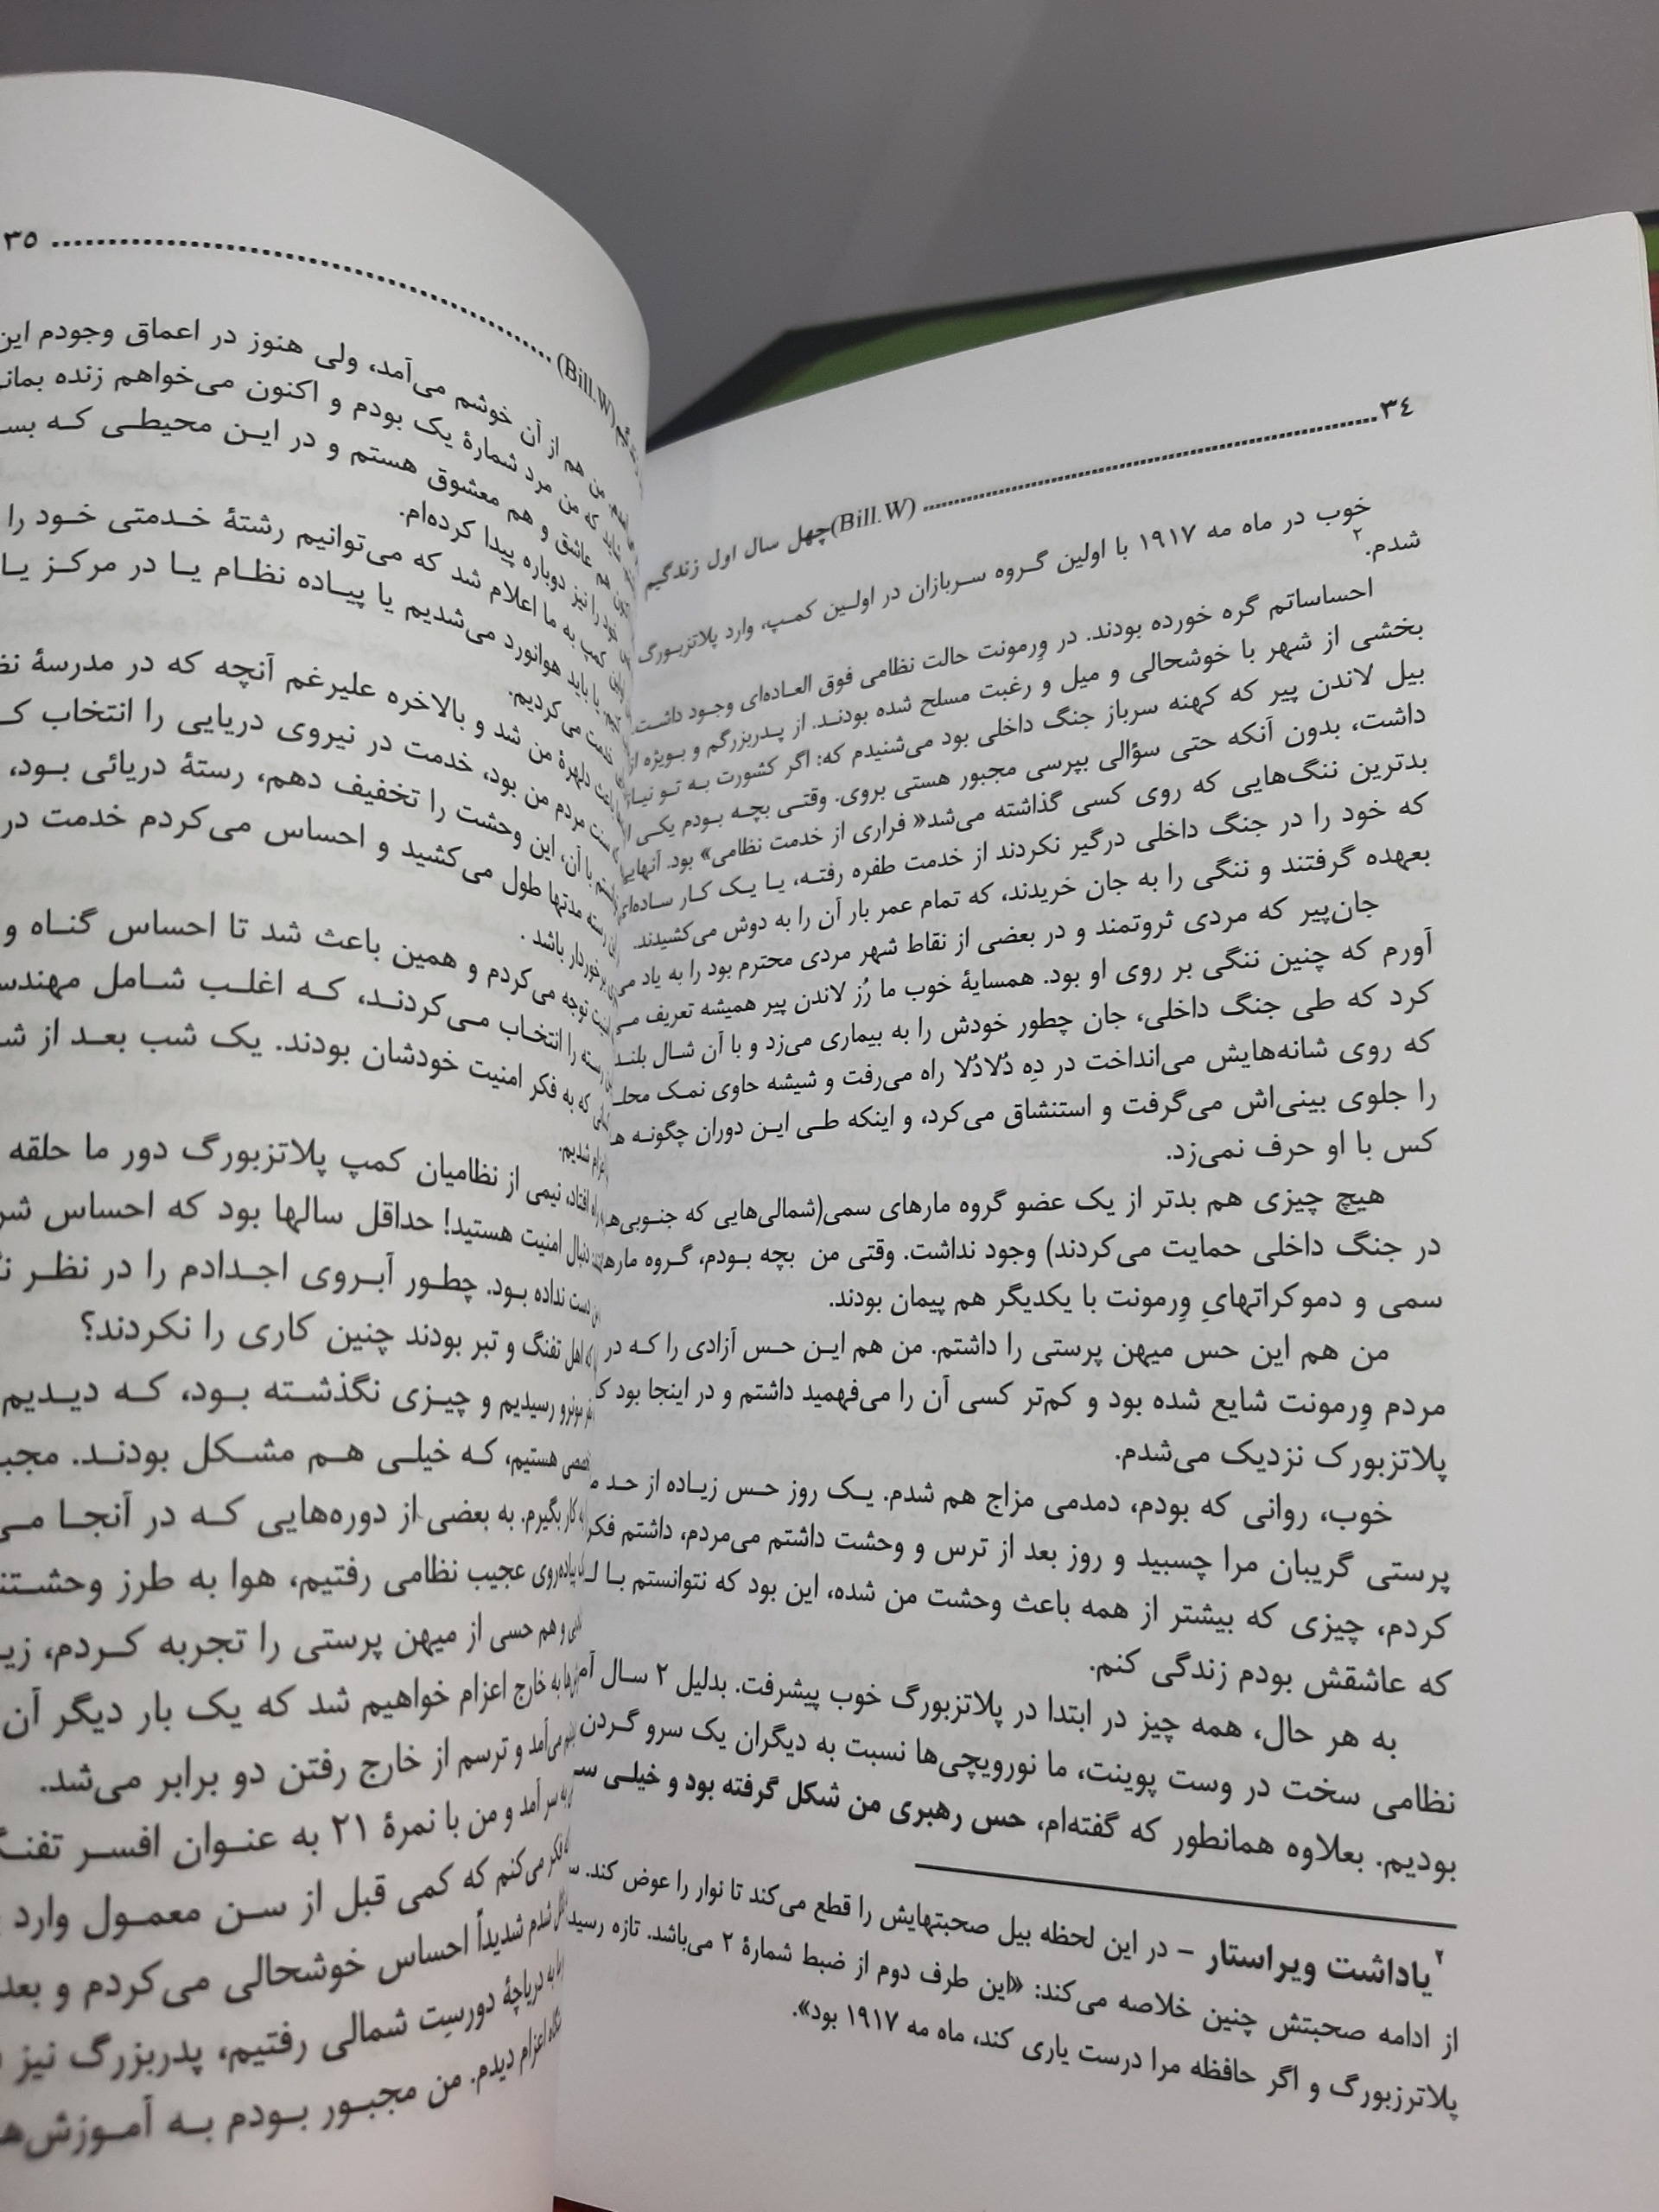 ۳٤
چهل سال اول زندگیم(Bill.W)
خوب در ماه مه ۱۹۱۷ با اولین گـروه سـربازان در اولـین کمـپ، وارد پلاتزبـورگ
شدم.۲
احساساتم گره خورده بودند. در وِرمونت حالت نظامی فوق العـاده‌ای وجـود داشـت.
بخشی از شهر با خوشحالی و میل و رغبت مسلح شده بودنـد. از پـدربزرگم و بـویژه از
بیل لاندن پیر که کهنه سرباز جنگ داخلی بود می‌شنیدم که: اگر کشورت بـه تـو نیـاز
داشت، بدون آنکه حتی سؤالی بپرسی مجبور هستی بروی. وقتـی بچـه بـودم یکـی از
بدترین ننگ‌هایی که روی کسی گذاشته می‌شد« فراری از خدمت نظامی» بود.
که خود را در جنگ داخلی درگیر نکردند از خدمت طفره رفتـه، یـا یـک کـار سـاده‌ای
بعهده گرفتند و ننگی را به جان خریدند، که تمام عمر بار آن را به دوش می‌کشیدند.
جان‌پیر که مردی ثروتمند و در بعضی از نقاط شهر مردی محترم بود را به یاد می
آورم که چنین ننگی بر روی او بود. همسایهٔ خوب ما رُز لاندن پیر همیشه تعریف مـی
کرد که طی جنگ داخلی، جان چطور خودش را به بیماری می‌زد و با آن شـال بلنـد
که روی شانه‌هایش می‌انداخت در دِه دُلادُلا راه می‌رفت و شیشه حاوی نمـک
را جلوی بینی‌اش می‌گرفت و استنشاق می‌کرد، و اینکه طـی ایـن دوران چگونـه
کس با او حرف نمی‌زد.
هیچ چیزی هم بدتر از یک عضو گروه مارهای سمی(شمالی‌هایی که
در جنگ داخلی حمایت می‌کردند) وجود نداشت. وقتی من بچه بـودم، گـروه
سمی و دموکراتهایِ وِرمونت با یکدیگر هم پیمان بودند.
من هم این حس میهن پرستی را داشتم. من هم ایـن حـس آزادی را کـه در
مردم وِرمونت شایع شده بود و کم‌تر کسی آن را می‌فهمید داشتم و در اینجا بود
پلاتزبورک نزدیک می‌شدم.
خوب، روانی که بودم، دمدمی مزاج هم شدم. یـک روز حـس زیـاده از حـد
پرستی گریبان مرا چسبید و روز بعد از ترس و وحشت داشتم می‌مردم، داشتم فکر
کردم، چیزی که بیشتر از همه باعث وحشت من شده، این بود که نتوانستم بـا
که عاشقش بودم زندگی کنم.
به هر حال، همه چیز در ابتدا در پلاتزبورگ خوب پیشرفت. بدلیل ۲ سـال
نظامی سخت در وست پوینت، ما نورویچی‌ها نسبت به دیگران یک سرو گـردن
بودیم. بعلاوه همانطور که گفته‌ام، حس رهبری من شکل گرفته بود و خیلـی
۲ یاداشت ویراستار – در این لحظه بیل صحبتهایش را قطع می‌کند تا نوار را عوض کند.
از ادامه صحبتش چنین خلاصه می‌کند: «این طرف دوم از ضبط شمارهٔ ۲ می‌باشد. تازه
پلاترزبورگ و اگر حافظه مرا درست یاری کند، ماه مه ۱۹۱۷ بود».
۳۵
(Bill.W)
من هم از آن خوشم می‌آمد، ولی هنوز در اعماق وجودم این
که من مرد شمارهٔ یک بودم و اکنون می‌خواهم زنده
هم عاشق و هم معشوق هستم و در ایـن محیطـی کـه
خود را نیز دوباره پیدا کرده‌ام.
کمپ به ما اعلام شد که می‌توانیم رشتهٔ خـدمتی خـود را
یا باید هوانورد می‌شدیم یا پیـاده نظـام یـا در مرکـز
خدمت می‌کردیم.
باعث دلهرهٔ من شد و بالاخره علیرغم آنچه که در مدرسهٔ
سنت مردم من بود، خدمت در نیروی دریایی را انتخاب
با آن، این وحشت را تخفیف دهم، رستهٔ دریائی بـود،
رسته مدتها طول می‌کشید و احساس می‌کردم خدمت در
برخوردار باشد .
توجه می‌کردم و همین باعث شد تا احساس گنـاه و
رسته را انتخـاب مـی‌کردنـد، کـه اغلـب شـامل
که به فکر امنیت خودشان بودند. یک شب بعـد از
اعزام شدیم.
افتاد، نیمی از نظامیان کمپ پلاتزبورگ دور ما حلقه
دنبال امنیت هستید! حداقل سالها بود که احساس
دست نداده بـود. چطـور آبـروی اجـدادم را در نظـر
که اهل تفنگ و تبر بودند چنین کاری را نکردند؟
رسیدیم و چیـزی نگذشـته بـود، کـه دیـدیم
هستیم، کـه خیلـی هـم مشـکل بودنـد.
کار بگیرم. به بعضی از دوره‌هایی کـه در آنجـا
پیاده‌روی عجیب نظامی رفتیم، هوا به طرز
و هم حسی از میهن پرستی را تجربه کـردم،
به خارج اعزام خواهیم شد که یک بار دیگر آن
می‌آمد و ترسم از خارج رفتن دو برابر می‌شد.
سر آمد و من با نمرهٔ ۲۱ به عنـوان افسـر
فکر می‌کنم که کمی قبل از سـن معمـول وارد
شدم شدیداً احساس خوشحالی می‌کردم و بعد
به دریاچهٔ دورسِت شمالی رفتیم، پدربزرگ نیز
اعزام دیدم. من مجبـور بـودم بـه